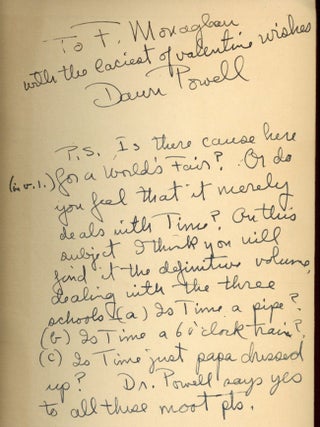 To F. Monaghan
with the laciest of valentine wishes
Dawn Powell
P.S. Is there cause here
(in v.1.) for a World's Fair? Or do
you feel that it merely
deals with Time? On this
subject I think you will
find it the definitive volume,
dealing with the three
schools (a) Is Time a pipe?
(b) Is Time a 6 o'clock train?
(c) Is Time just papa dressed
up? Dr. Powell says yes
to all these moot pts.